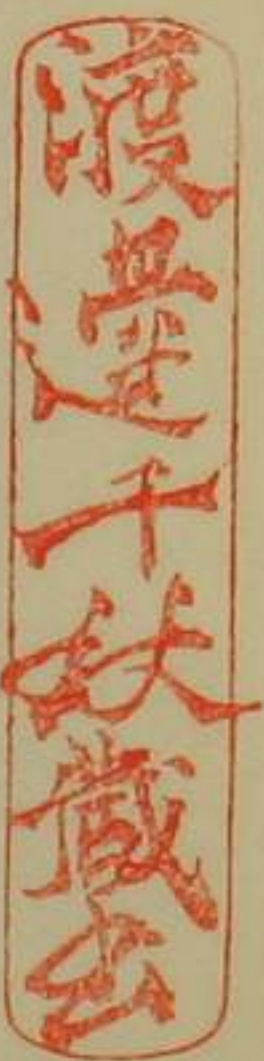 渡邊千秋蔵書